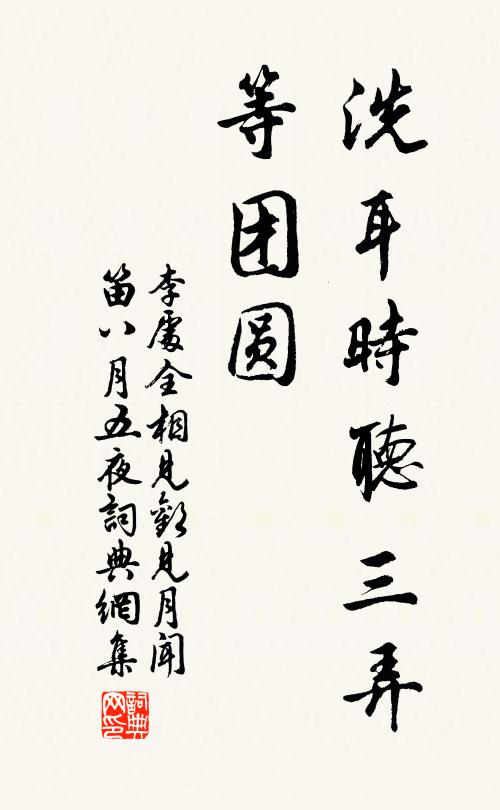 洗耳時聽三弄
等团圆
李處全相見歡見月聞
笛八月五夜詞典網集
詞典
网印